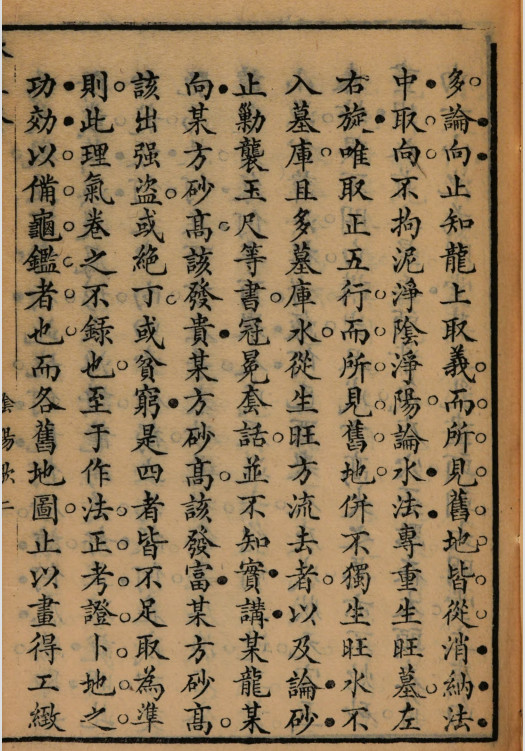 多論向止知龍上取義而所見舊地皆從消納法
中取向不拘泥淨陰淨陽論水法專重生旺墓左
右旋唯取正五行而所見舊地併不獨生旺水不
入墓庫且多墓庫水從生旺方流去者以及論砂
止勦襲玉尺等書冠冕套話並不知實講某龍某
向某方砂髙該發貴某方砂髙該發富某方砂髙
該出强盜或絶丁或貧窮是四者皆不足取為準
則此理氣卷之不録也至于作法正考證卜地之
功効以俻龜鑑者也而各舊地圖止以畫得工緻
陰陽